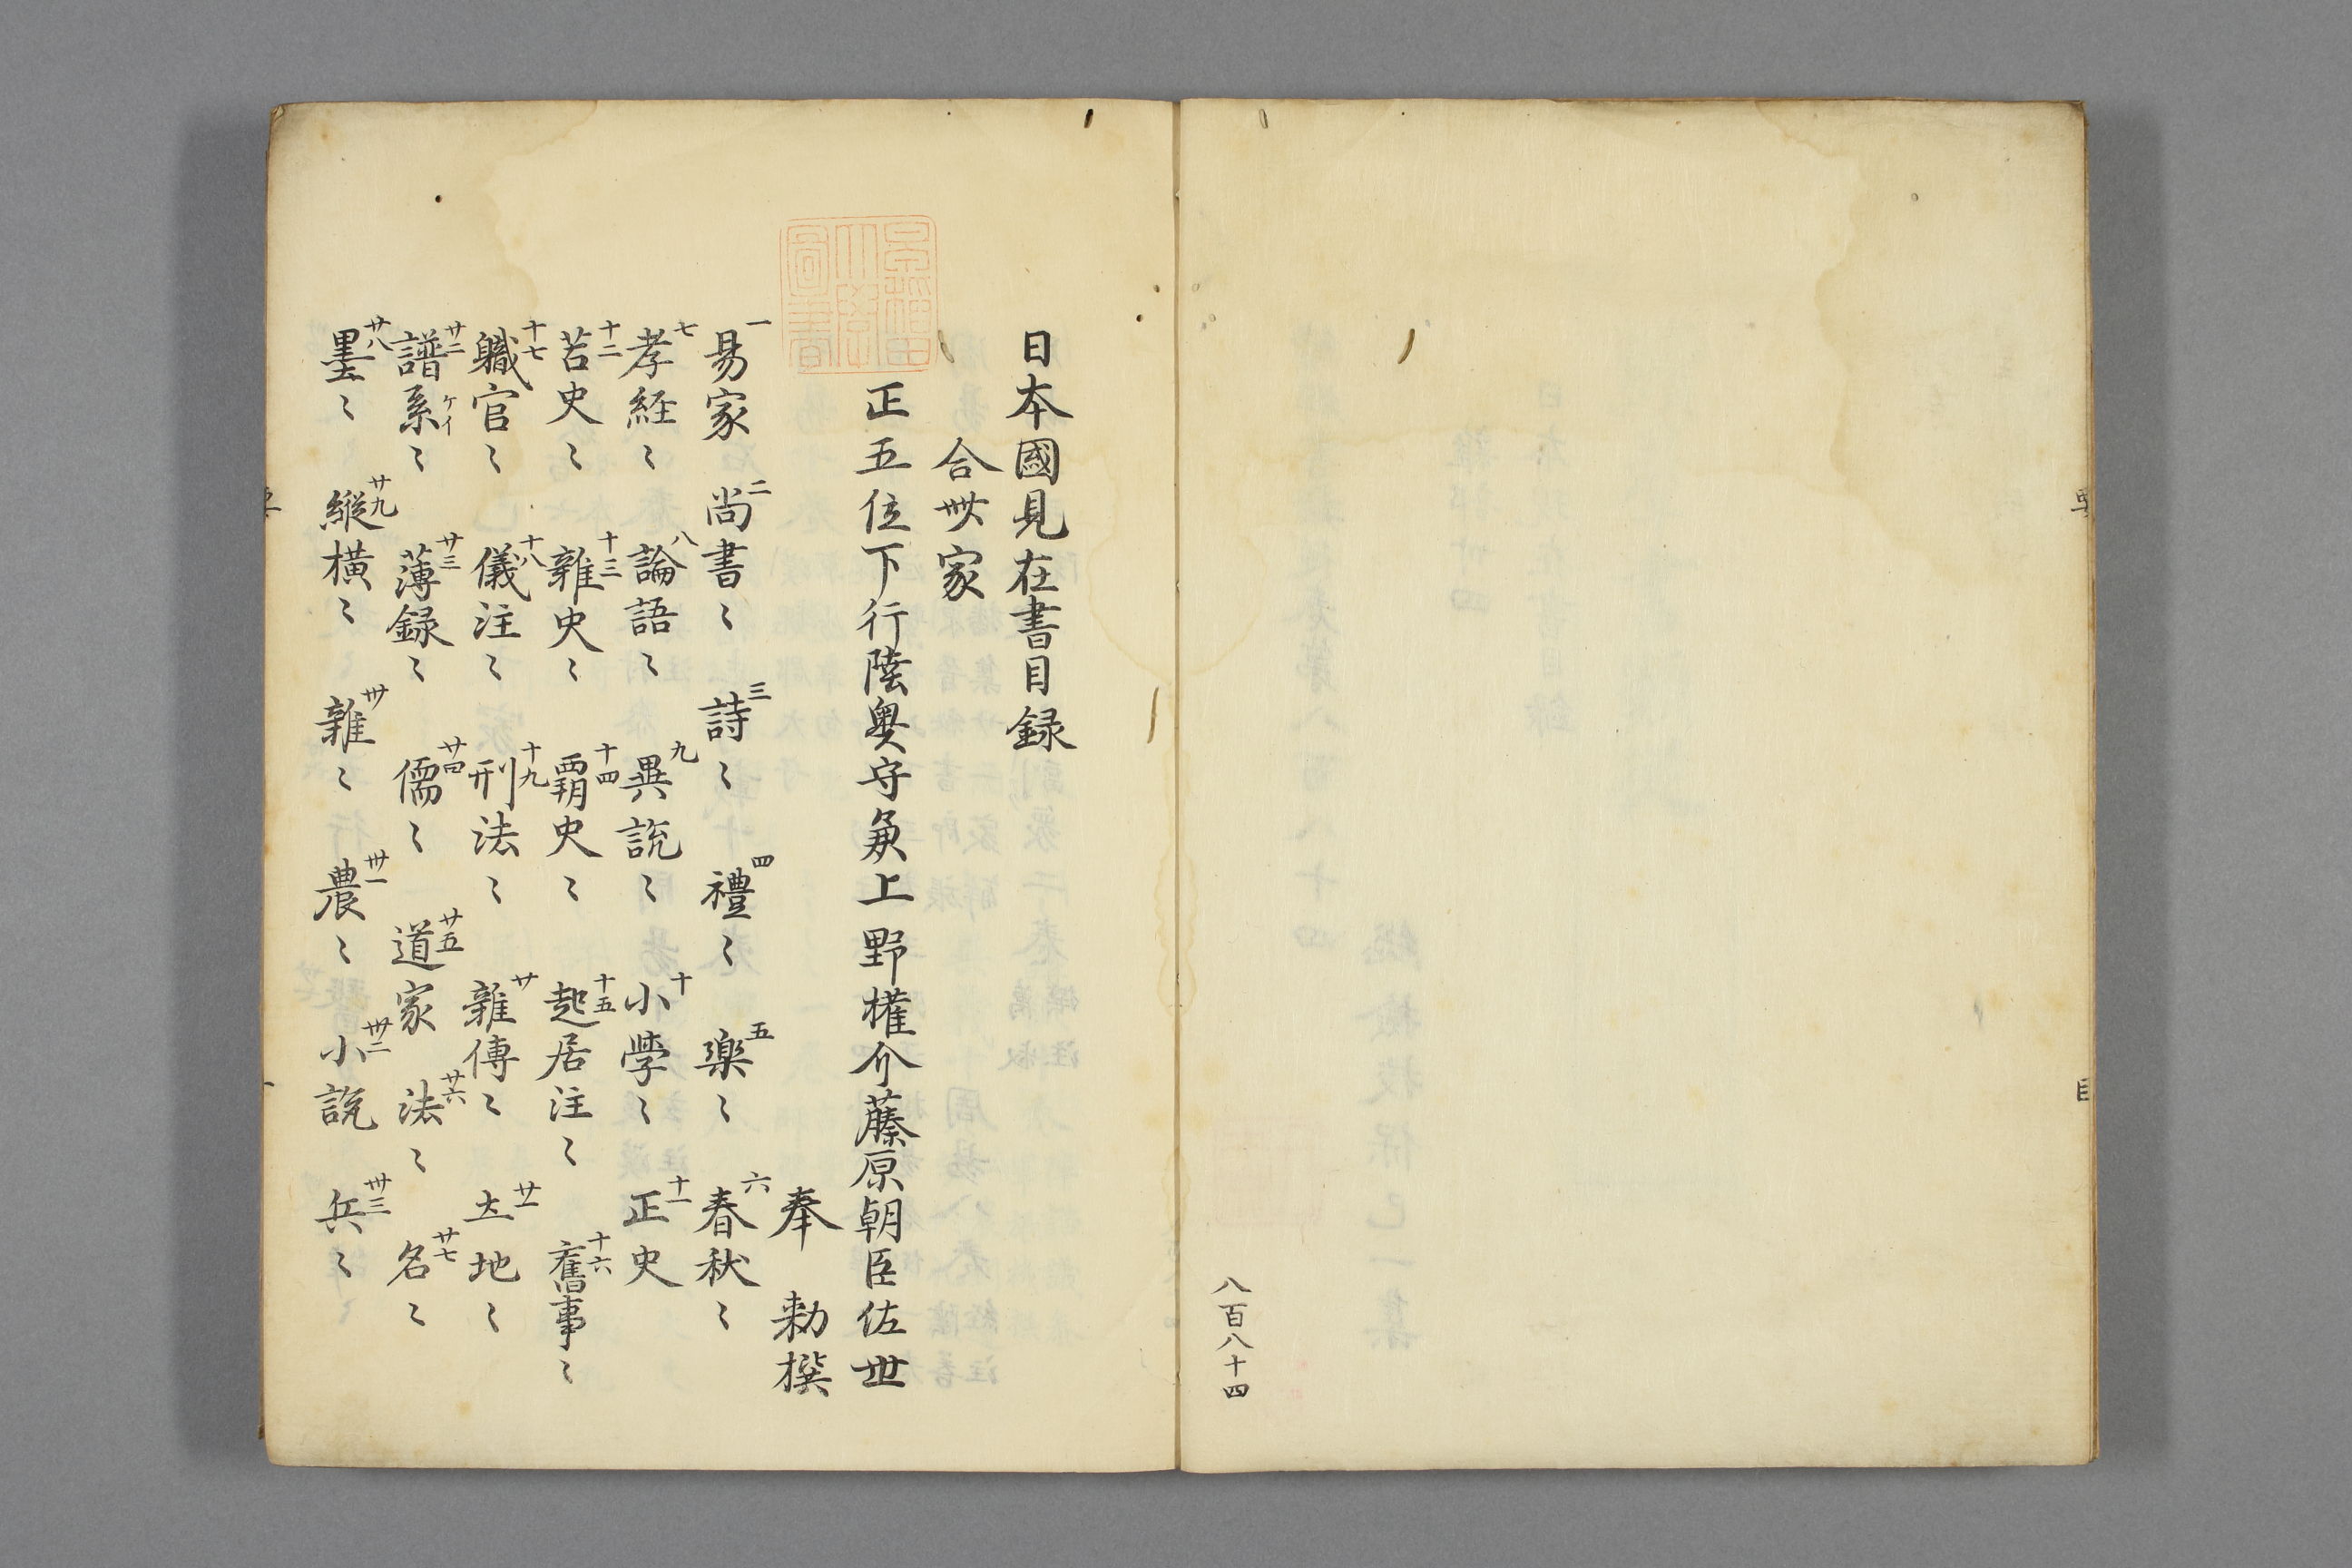 八百八十四
日本國見在書目録
合卌家
正五位下行陸奥守兼上野權介藤原朝臣佐世
奉　勅撰
一易家　二尚書〻　三詩〻　四禮〻　五樂〻　六春秋〻
七孝経〻　八論語〻　九異説〻　十小學〻　十一正史
十二苫史〻　十三雜史〻　十四覇史〻　十五起居注〻　十六舊事〻
十七職官〻　十八儀注〻　十九刑法〻　廿雜傳〻　廿一土地〻
廿二譜系ケイ〻　廿三薄録〻　廿四儒〻　廿五道家　廿六法〻　廿七名〻
廿八墨〻　廿九縦横〻　卅雜〻　卅一農〻　卅二小説　卅三兵〻